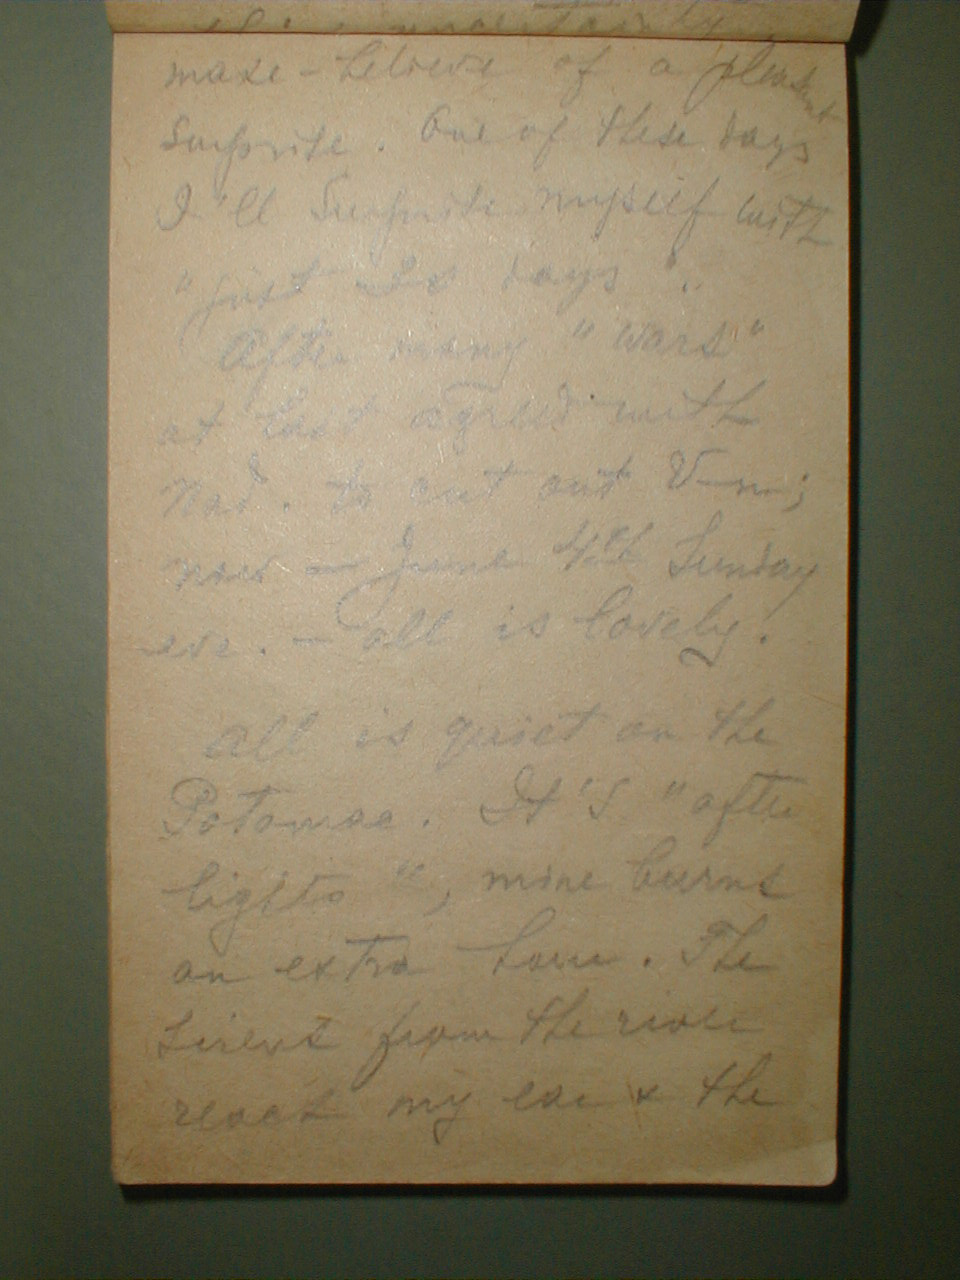 make-believe of a pleasant
Surprise. One of these days
I'll Surprise myself with
"just Is days".
After many "Wars"
at last agreed with
Nad. to cut out V—m;
now — June 4th Sunday
eve. — all is lovely.
All is quiet on the
Potomac. It's "after
lights", mine burns
an extra hour. The
Sirens from the river
reach my ear & the